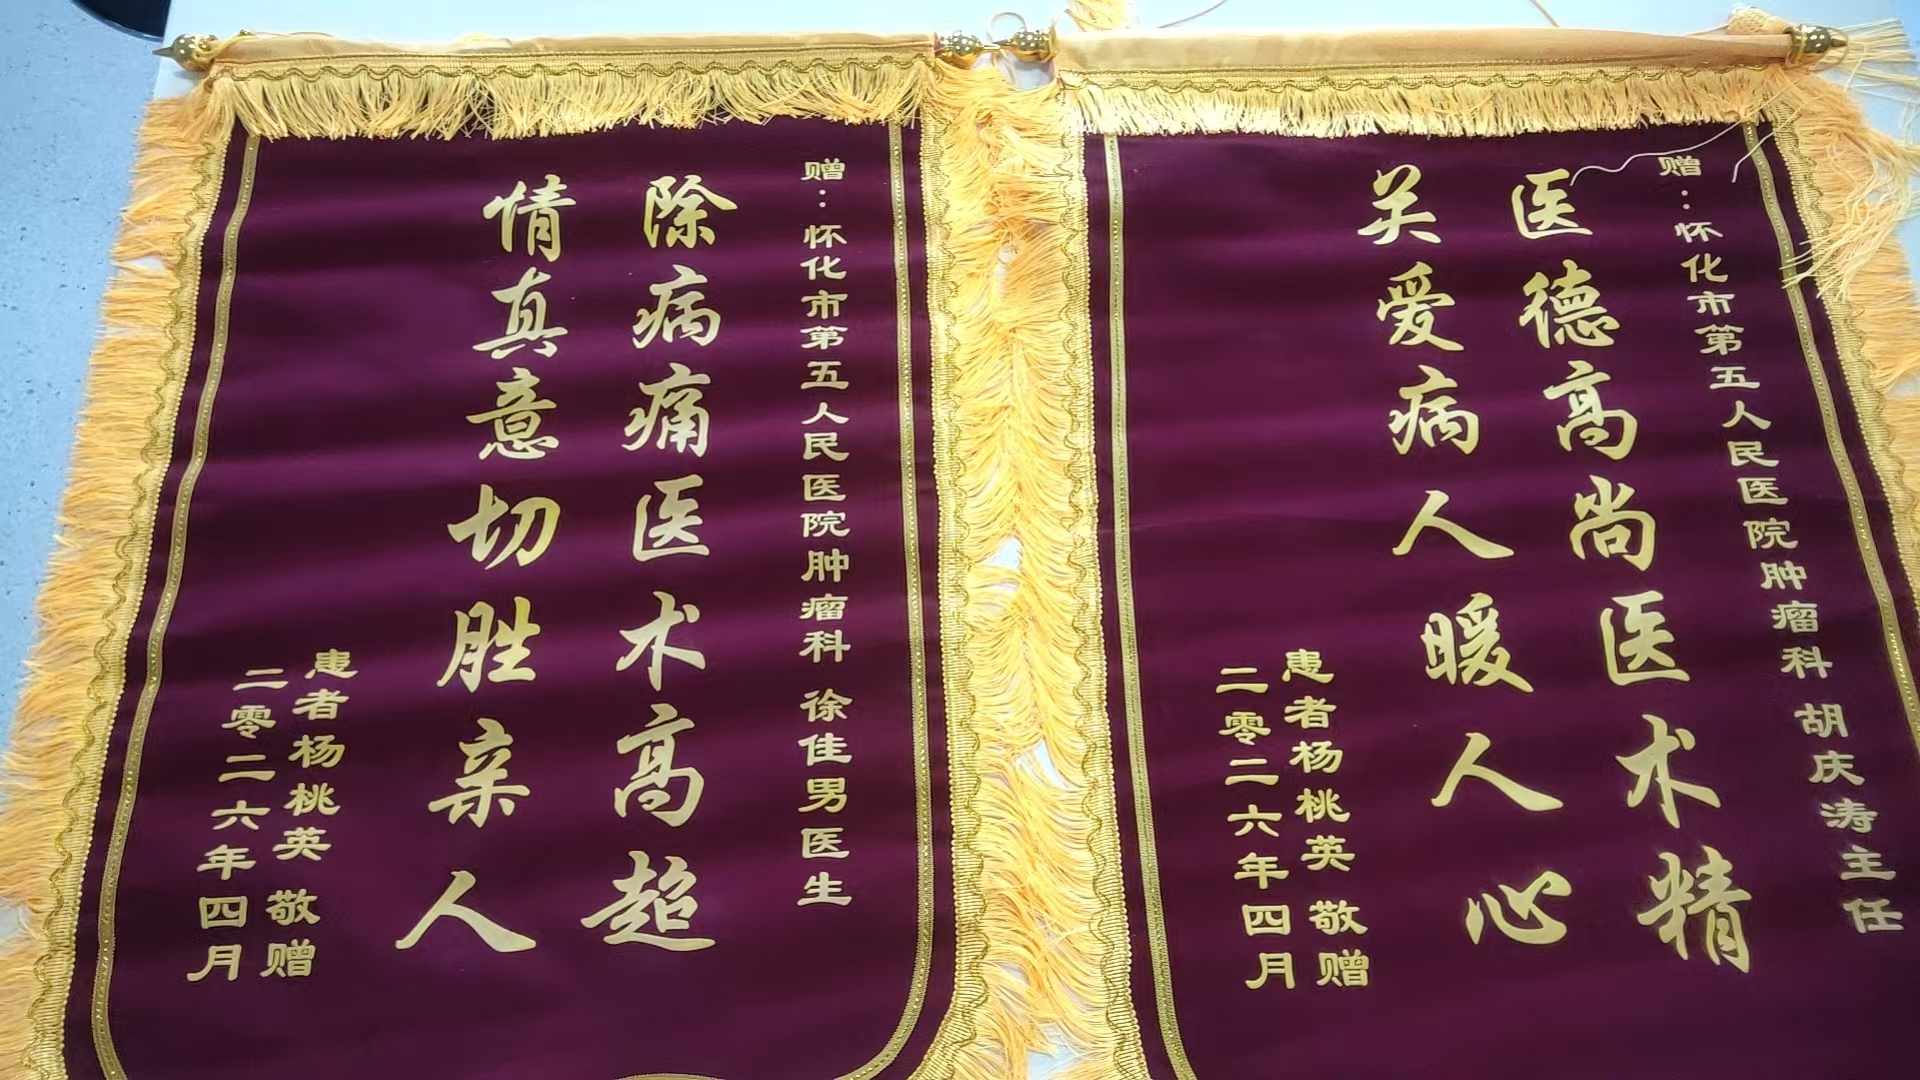 赠：怀化市第五人民医院肿瘤科 胡庆涛主任
医德高尚医术精
关爱病人暖人心
患者杨桃英 敬赠
二零二六年四月
赠：怀化市第五人民医院肿瘤科 徐佳男医生
除病痛医术高超
情真意切胜亲人
患者杨桃英 敬赠
二零二六年四月